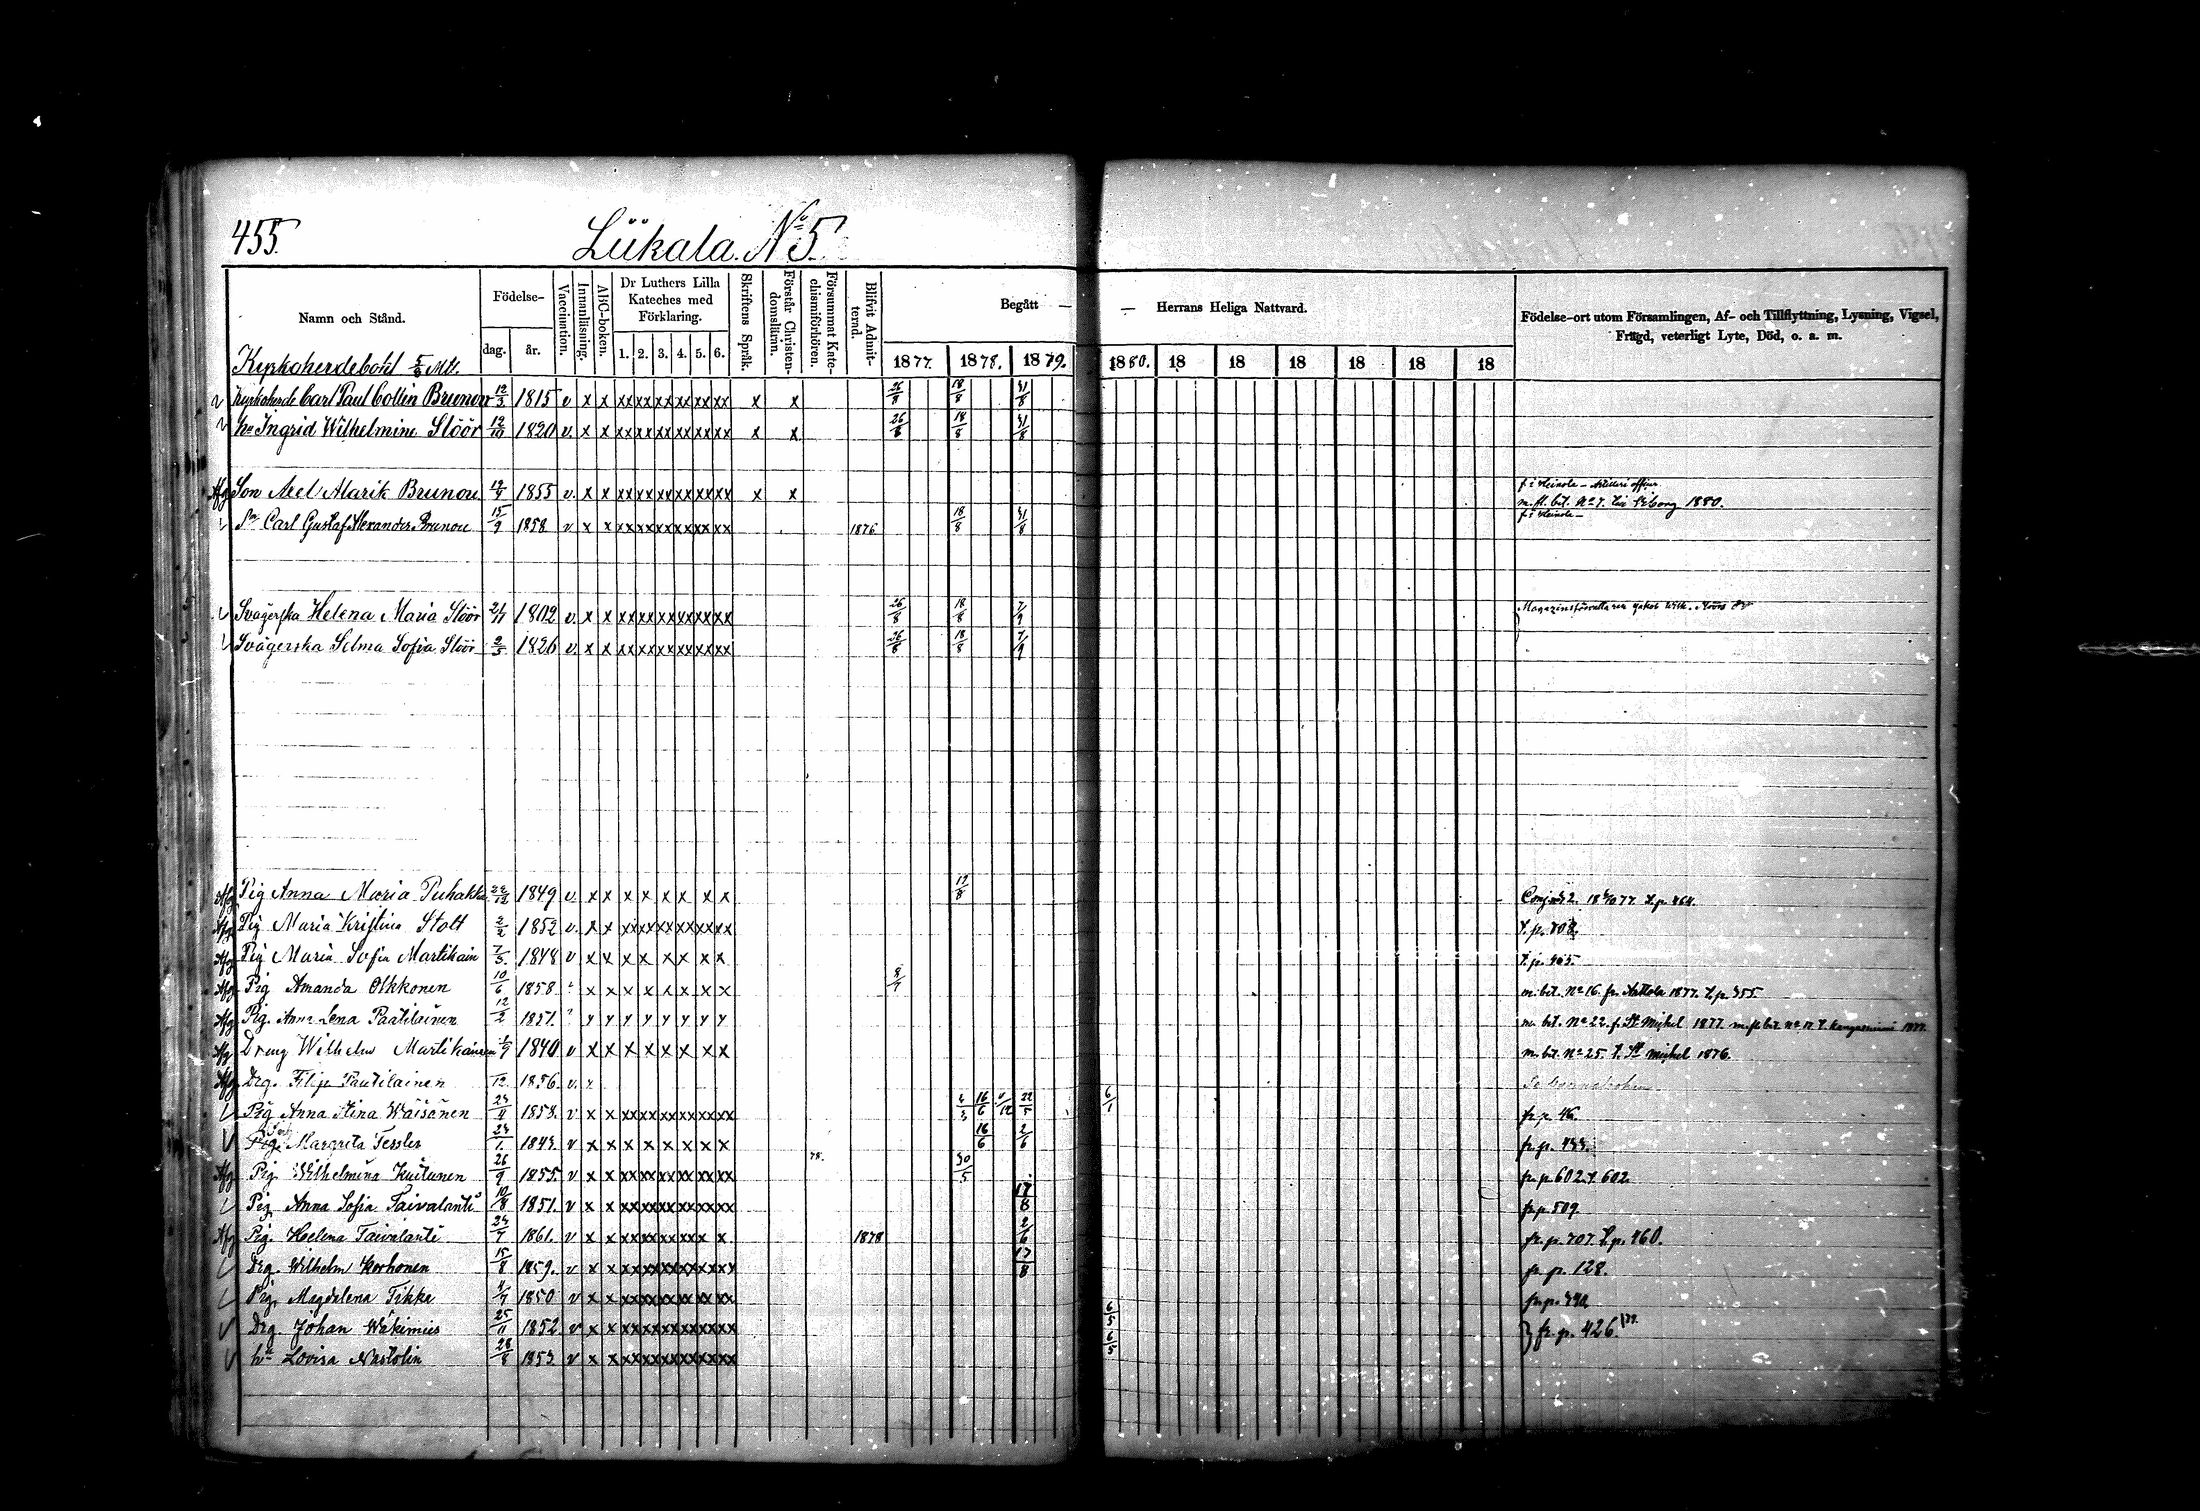 455.
Liikala. No 5.
Namn och Stånd.
Födelse-
dag.
år.
Vaccination.
Innanläsning.
ABC-boken.
Dr Luthers Lilla
Kateches med
Förklaring.
1. 2. 3. 4. 5. 6.
Skriftens Språk.
Förstår Christen-
domslätan.
Försummat Kate-
chismiförhören.
Blifvit Admit-
terad.
Begått —
— Herrans Heliga Nattvard.
1877. 1878. 1879. 1880. 18 18 18 18 18 18
Födelse-ort utom Församlingen, Af- och Tillflyttning, Lysning, Vigsel,
Frägd, veterligt Lyte, Död, o. a. m.
Kyrkoherdebohl 5/8 Mtl.
v Kyrkoherde Carl Paul Collin Brunou 12/3 1815 v x x xx xx xx xx xx xx x x 26/8 18/8 31/8
v Hu Ingrid Wilhelmine Stöör 12/10 1820 v. x x xx xx xx xx xx xx x x 26/8 18/8 31/8
Afg Son Axel Alarik Brunou 1855 v. x x xx xx xx xx xx xx x x f. i Heinola
m. fl. bet. No 7. Wiborg 1880.
v Sn Carl Gustaf Alexander Brunou 15/9 1858 v x x xx xx xx xx xx xx 1876 18/8 31/8 f. i Heinola
v Svägerska Helena Maria Stöör 1802 v. x x xx xx xx xx xx xx 26/8 18/8 7/9 Magazinsförvaltaren Jakob Wilh. Stöörs
v Svägerska Selma Sofia Stöör 2/5 1826 v. x x xx xx xx xx xx xx 26/8 18/8 7/9
Afg Pig Anna Maria Puhakka 22/12 1849 v. x x x x x x x x 19/8 t. p. 464.
Afg Pig Maria Kristina Stolt 2/2 1852 v. x x xx xx xx xx xx xx t. p. 708.
Afg Pig Maria Sofia Martikain 7/5 1848 v x x x x x x x x t. p. 465.
Afg Pig Amanda Olkkonen 10/6 1858 x x x x x x x x 8/7 m. bet. No 16. fr. 1877. t. p. 355.
Afg Pig. Anna Lena Paatilainen 12/2 1851. m. bet. No 22. fr. St Michel 1877 m. fl. bet. No 12 t. Kangasniemi 1877.
Afg Dreng Wilhelm Martikainen 1840 v x x x x x x x x m. bet. No 25. t. St Michel 1876.
Afg Drg. Filip Pautilainen 12 1856. v.
v Pig Anna Stina Wäisänen 1853. v x x xx xx xx xx xx xx 16/6 22/5 6/1 fr. p. 46.
v Pig. Margreta Tessler 1843. v x x x x x x x x 16/6 2/6 fr. p. 433.
Afg Pig. Wilhelmina Kuitunen 26/9 1855. v x x xx xx xx xx xx xx 78. 30/5 fr. p. 602. t. 602.
v Pig Anna Sofia Taivalanti 10/8 1851. v x x xx xx xx xx xx xx 17/8 fr. p. 509.
Afg Pig. Helena Taivalanti 1861. v x x xx xx xx xx x x 1878 2/6 fr. p. 707. t. p. 460.
v Drg. Wilhelm Korhonen 15/8 1859. v x x xx xx xx xx xx xx 17/8 fr. p. 128.
v Pig. Magdalena Tikka 1850 v x x xx xx xx xx xx xx fr. p.
v Drg. Johan Wakimies 25/11 1852 v x x xx xx xx xx xx xx 6/5 fr. p. 426.
v hu Lovisa Nastolin 28/8 1853 v x x xx xx xx xx xx xx 6/5